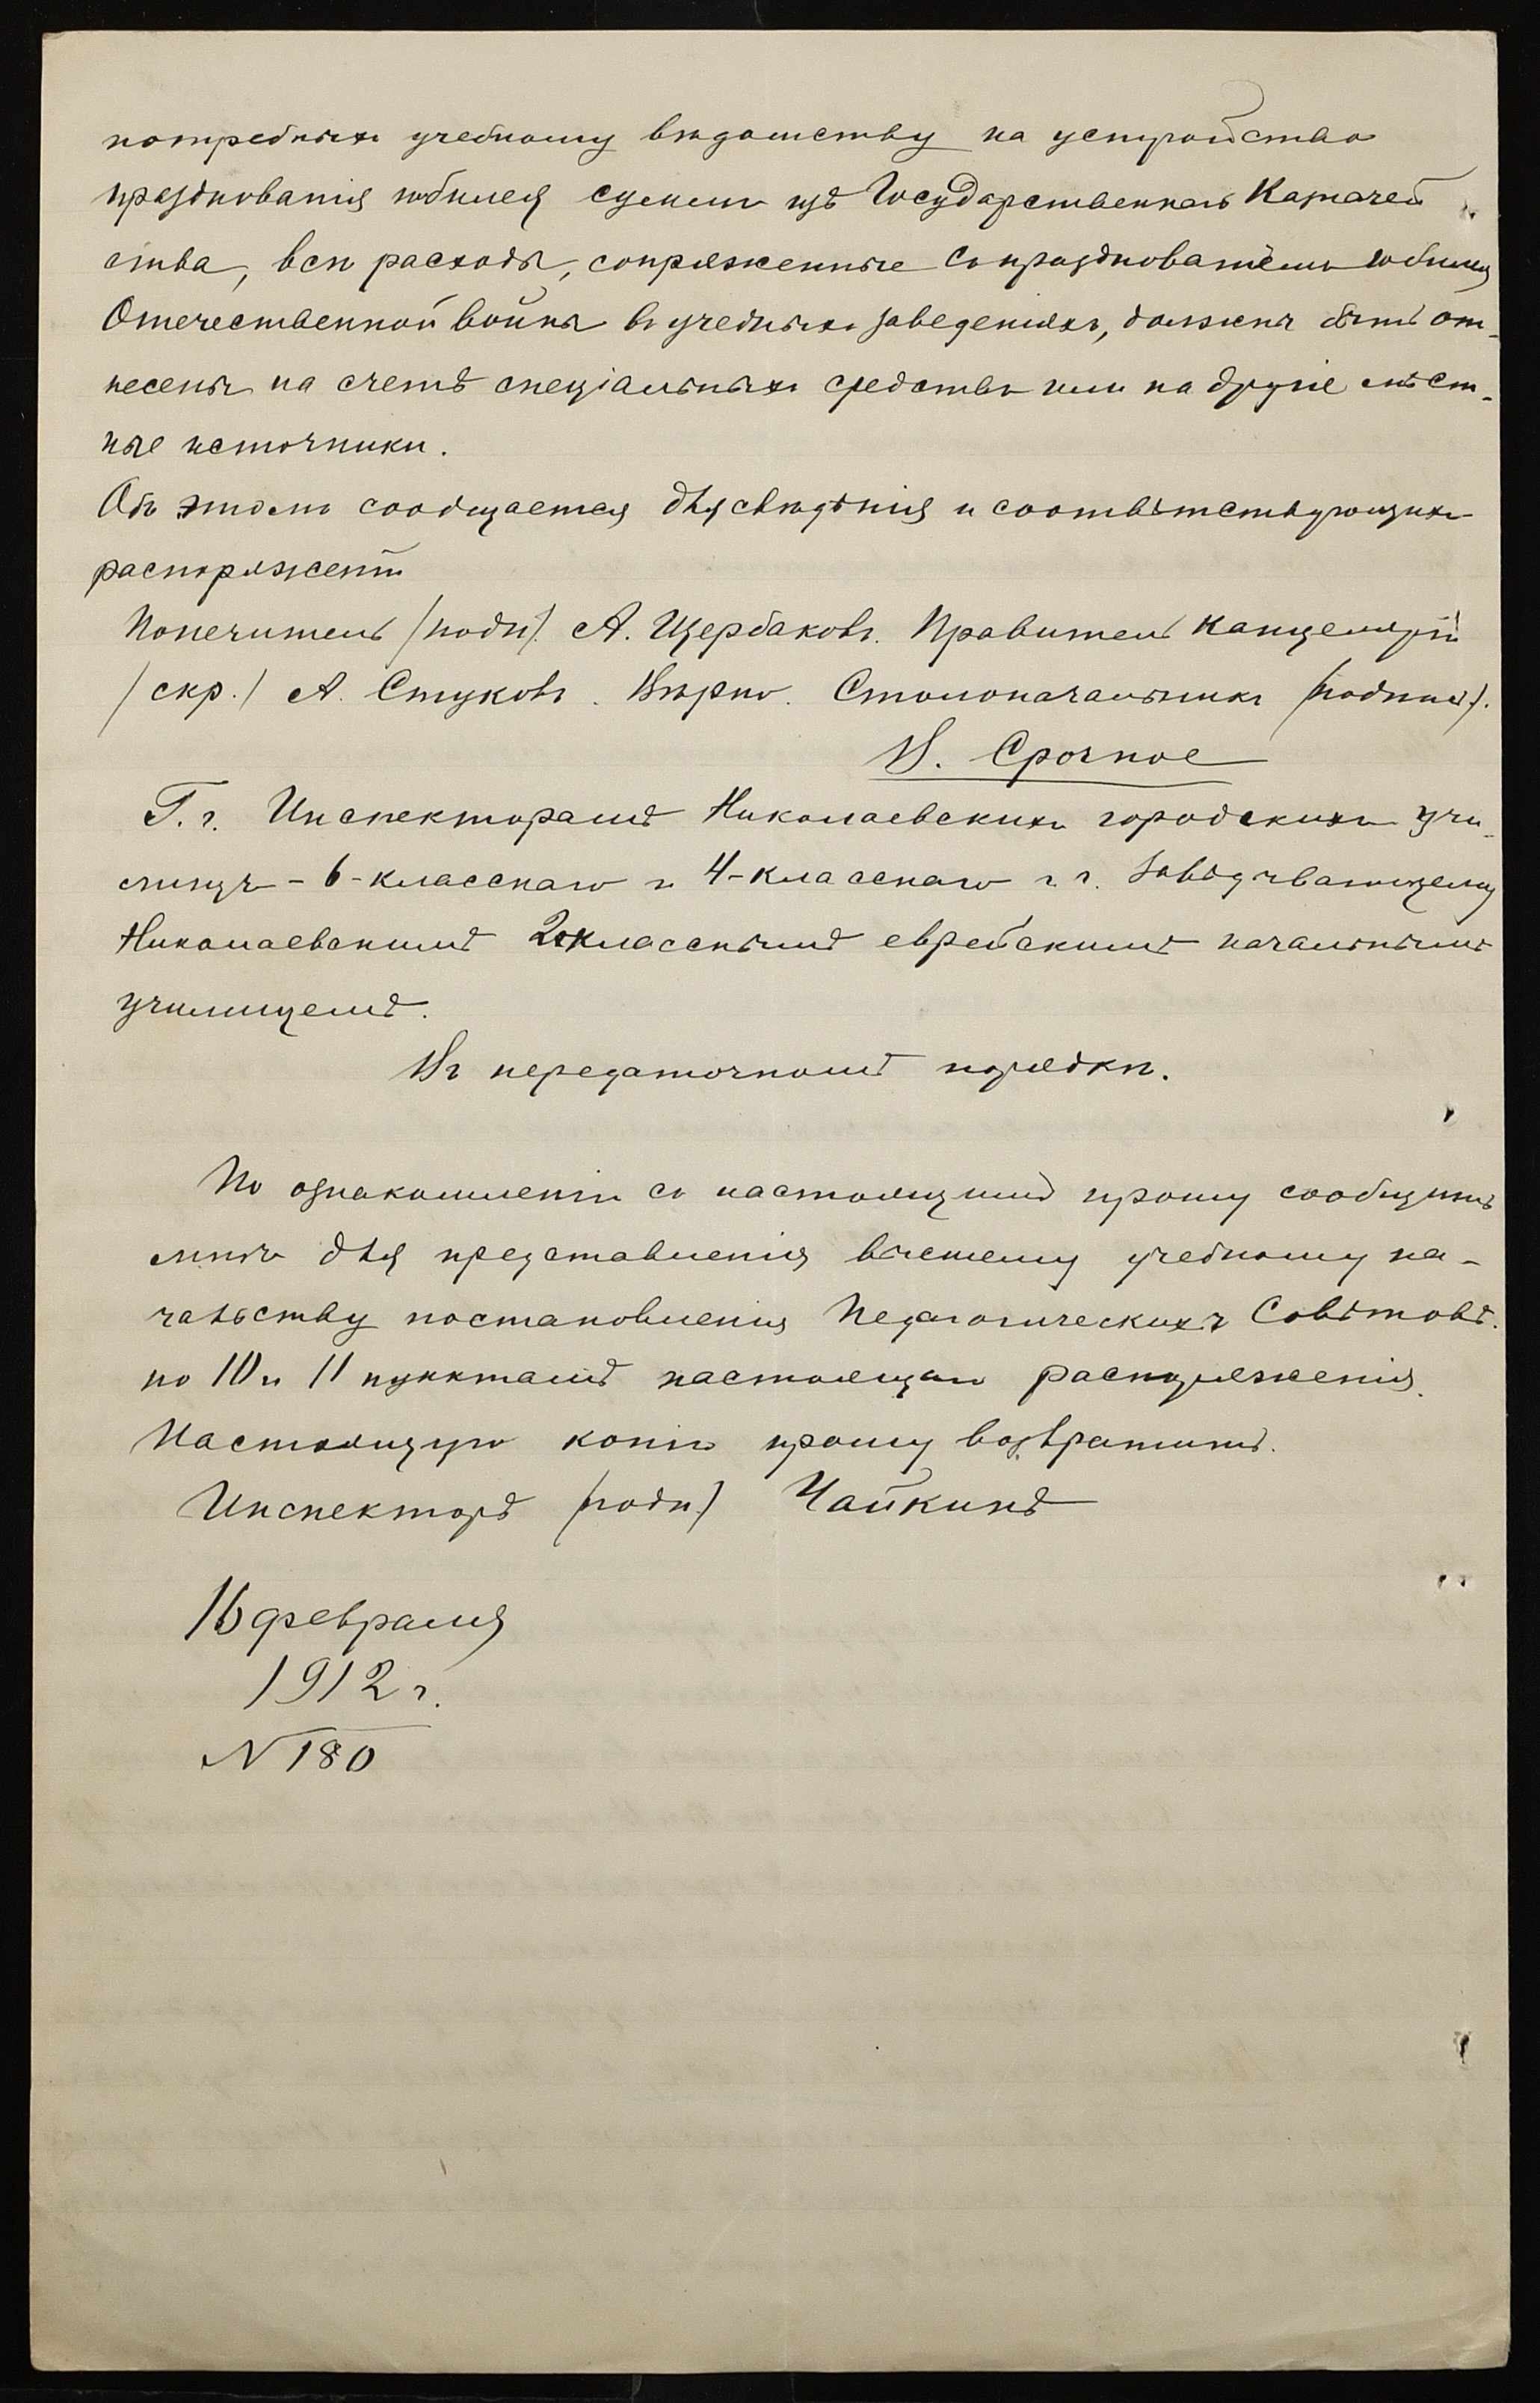 потребныхъ учебному вѣдомству на устройство
празднованія юбилея суммъ изъ Государственнаго Казначей
ства, всѣ расходы, сопряженные съ празднованіемъ юбилея
Отечественной войны въ учебныхъ заведеніяхъ, должны быть от-
несены на счетъ спеціальныхъ средствъ или на другіе мѣст-
ные источники.
Объ этомъ сообщается для свѣдѣнія и соотвѣтствующихъ
распоряженій
Попечитель /подп/. А. Щербаковъ. Правитель Канцеляріи
/скр./ А. Стуковъ. Вѣрно. Столоначальникъ /подпись/.
В. Срочное
Г.г. Инспекторамъ Николаевскихъ городскихъ учи-
лищъ - 6-класснаго и 4-класснаго и г. Завѣдывающему
Николаевскимъ 2хкласснымъ еврейскимъ начальнымъ
училищемъ.
Въ передаточномъ порядкѣ.
По ознакомленіи съ настоящимъ прошу сообщить
мнѣ для представленія высшему учебному на-
чальству постановленія Педагогическихъ Совѣтовъ.
по 10 и 11 пунктамъ настоящаго распоряженія.
Настоящую копію прошу возвратить.
Инспекторъ /подп/ Чайкинъ
16 февраля
1912 г.
N 180